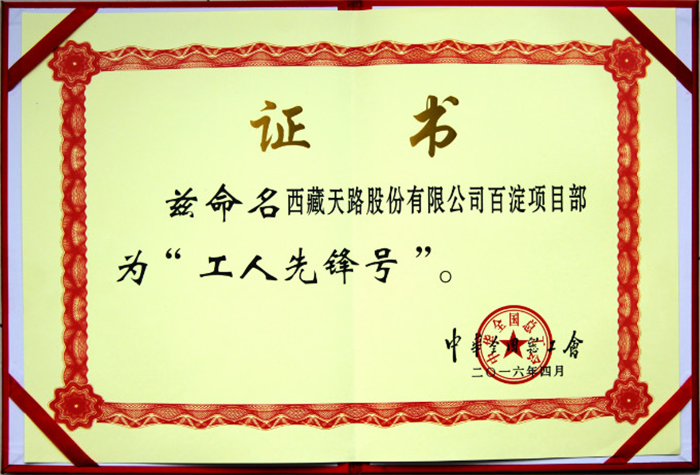 证书
兹命名西藏天路股份有限公司百淀项目部
为“工人先锋号”。
中华全国总工会
中華全国總工會
二〇一六年四月